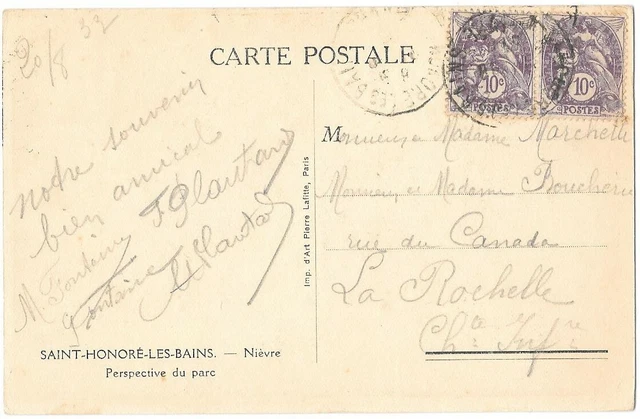 20/8 32
CARTE POSTALE
10c
POSTES
10c
POSTES
notre souvenir
bien amical
M Fontaine
Fontaine
Imp. d'Art Pierre Lafitte, Paris
Monsieur et Madame Marchelli
Monsieur et Madame
rue du Canada
La Rochelle
Chte Infre
SAINT-HONORÉ-LES-BAINS. — Nièvre
Perspective du parc